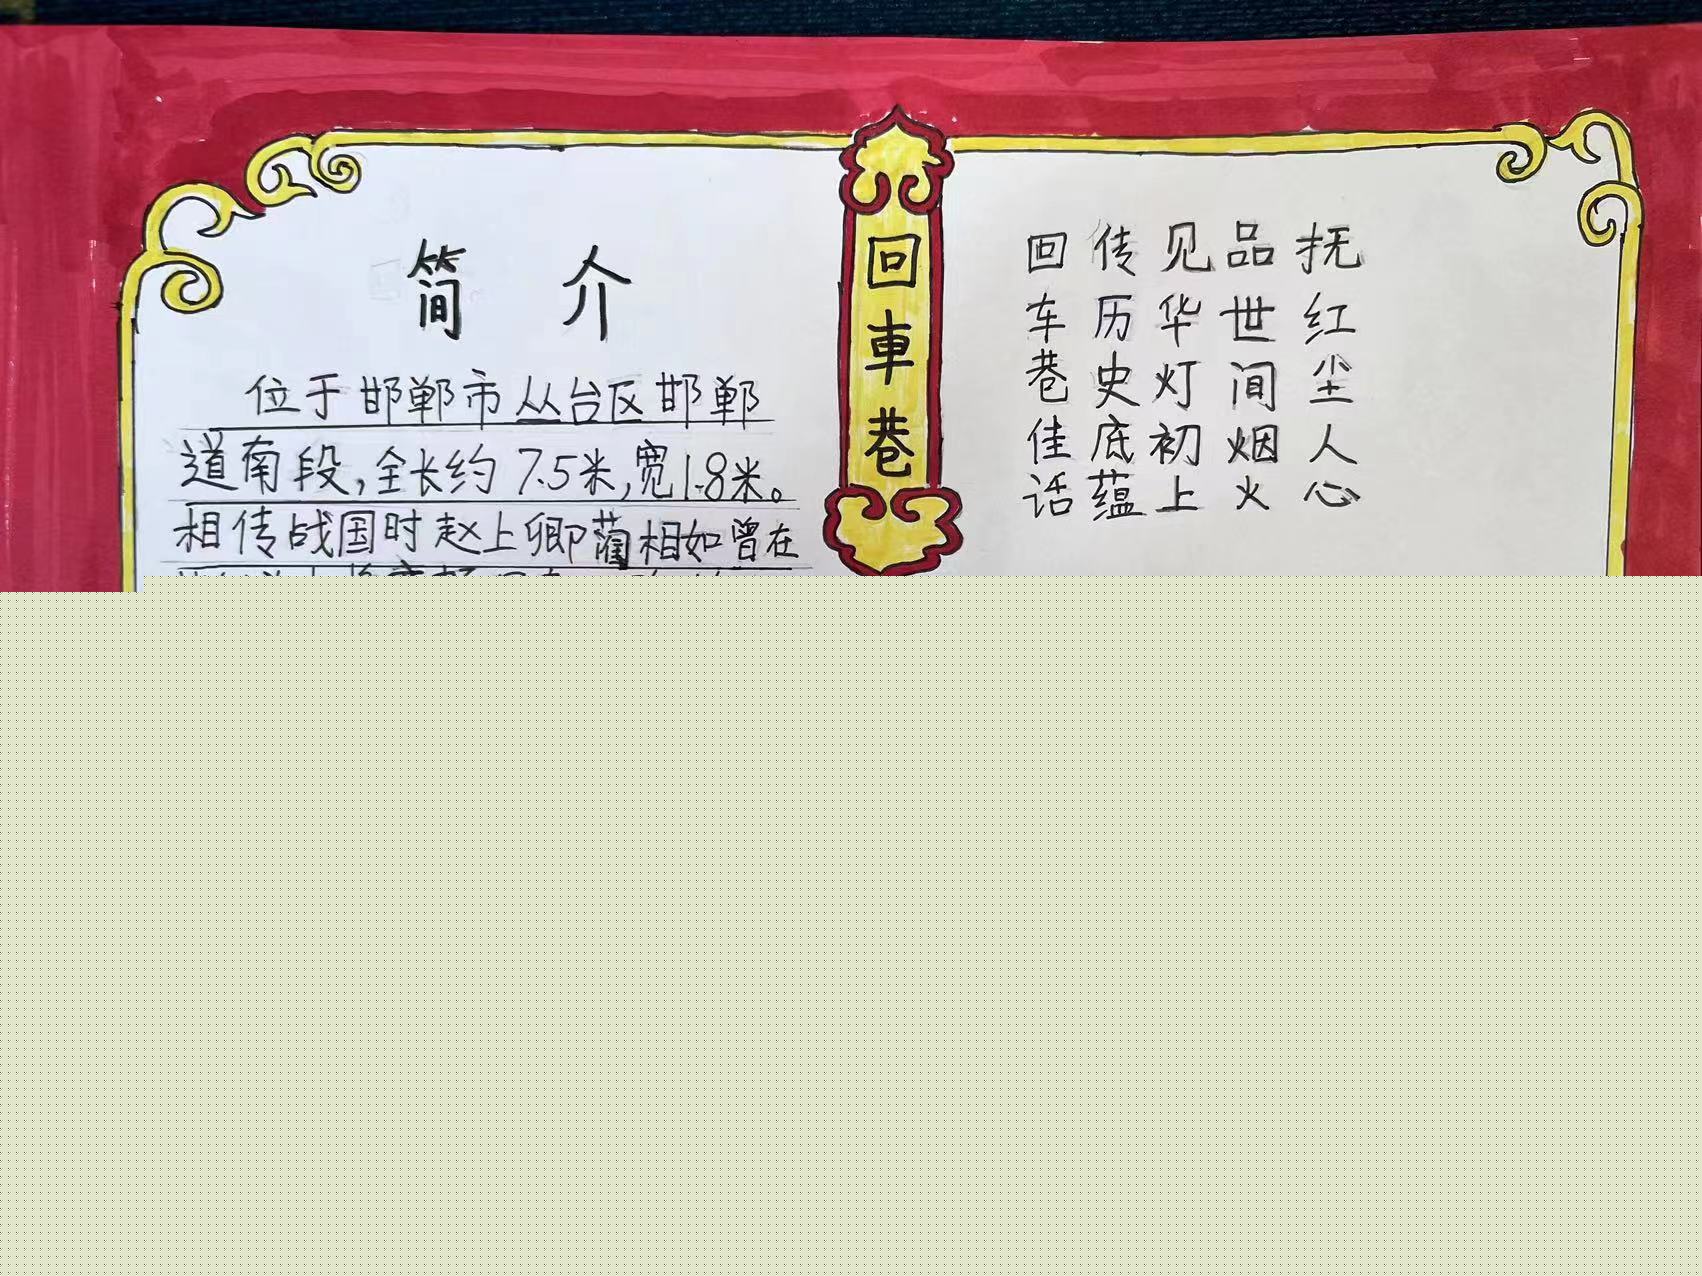 简 介
位于邯郸市丛台区邯郸
道南段,全长约7.5米,宽1.8米。
相传战国时赵上卿蔺相如曾在
回車巷
回车巷佳话
传历史底蕴
见华灯初上
品世间烟火
抚红尘人心